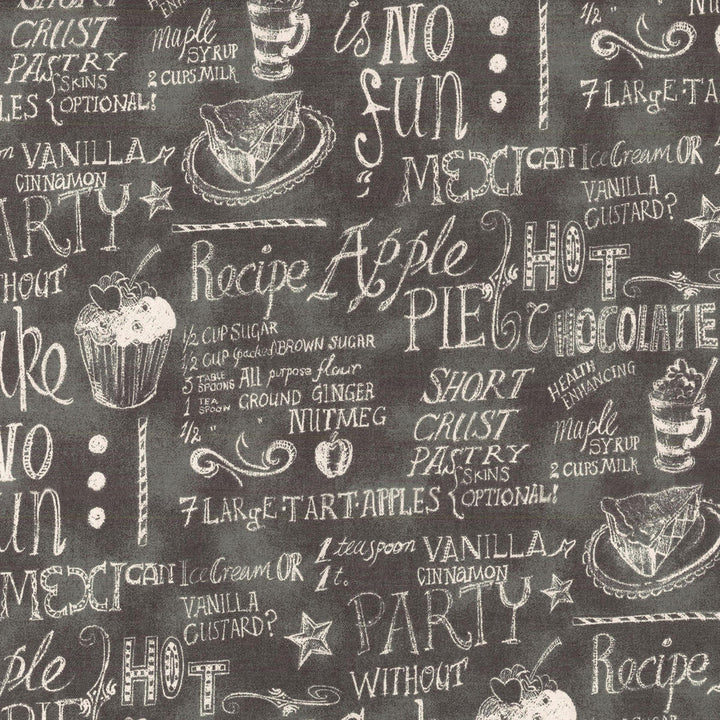 SHORT
CRUST
PASTRY
SKINS
LES { OPTIONAL!
ENHANCING
maple
SYRUP
2 CUPS MILK
is NO
fun
1/2 "
NU
7 LARgE·TA
VANILLA
CINNAMON
ARTY
HOUT
ake
NO
UN
MEXICAN IceCream OR
VANILLA
CUSTARD?
Recipe Apple
PIE
HOT
CHOCOLATE
1/2 CUP SUGAR
1/2 CUP (packed) BROWN SUGAR
3 TABLE SPOONS All purpose flour
1 TEA SPOON GROUND GINGER
1/2 " " NUTMEG
7 LARgE·TART·APPLES { OPTIONAL!
SHORT
CRUST
PASTRY
SKINS
HEALTH
ENHANCING
maple
SYRUP
2 CUPS MILK
MEXICAN IceCream OR
VANILLA
CUSTARD?
1 teaspoon VANILLA
1 t. CINNAMON
PARTY
WITHOUT
ple
PIE
HOT
Recipe